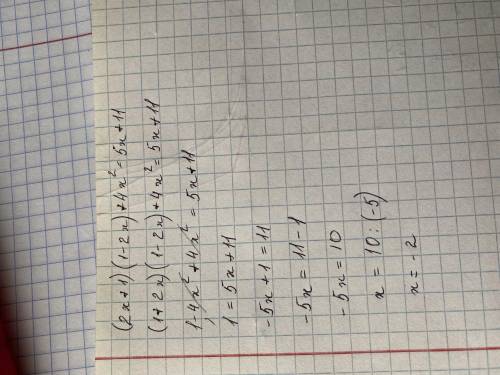 (2x+1)(1-2x)+4x²=5x+11
(1+2x)(1-2x)+4x²=5x+11
1-4x²+4x²=5x+11
1=5x+11
-5x+1=11
-5x=11-1
-5x=10
x=10:(-5)
x=-2